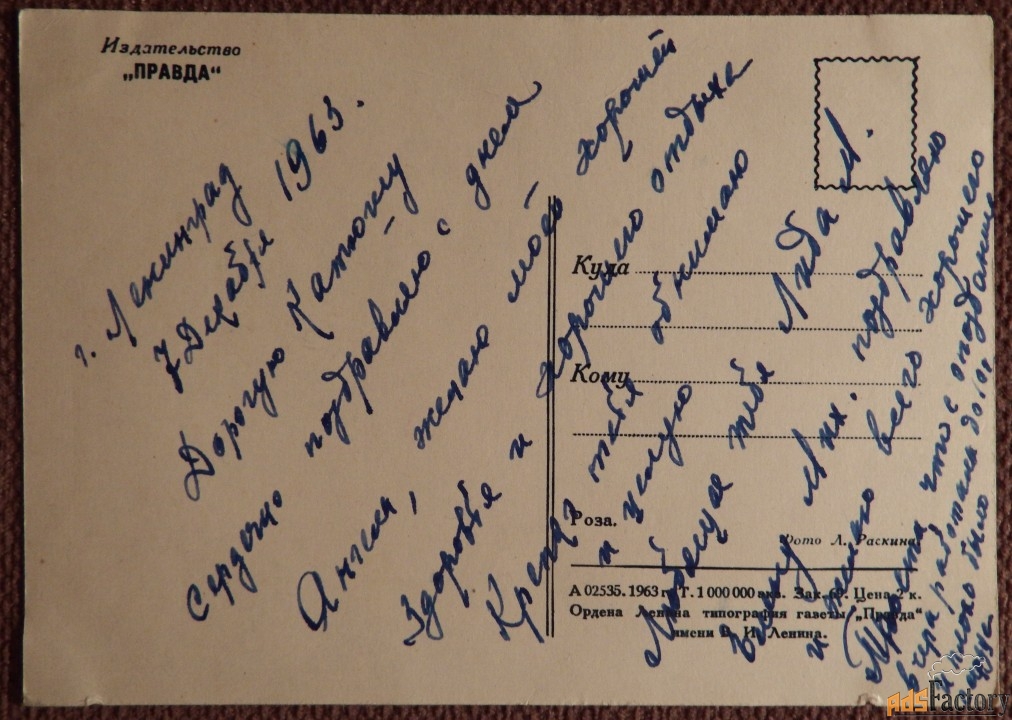 Издательство
„ПРАВДА“
г. Ленинград
7 Декабря 1963.
Дорогую Катюшу
сердечно поздравляю с днем
Ангела, желаю моей хорошей
Здоровья и хорошего отдыха
Крепко тебя обнимаю
и целую
Любящая тебя Лида М.
поздравляю
и желаю всего хорошего
Прости что с опозданием
вчера работала до
и плохо было
Куда
Кому
Роза.
Фото Л. Раскина.
А 02535. 1963 г. Т. 1 000 000 экз. Зак. 69. Цена 2 к.
Ордена Ленина типография газеты „Правда“
имени В. И. Ленина.
adsFactory